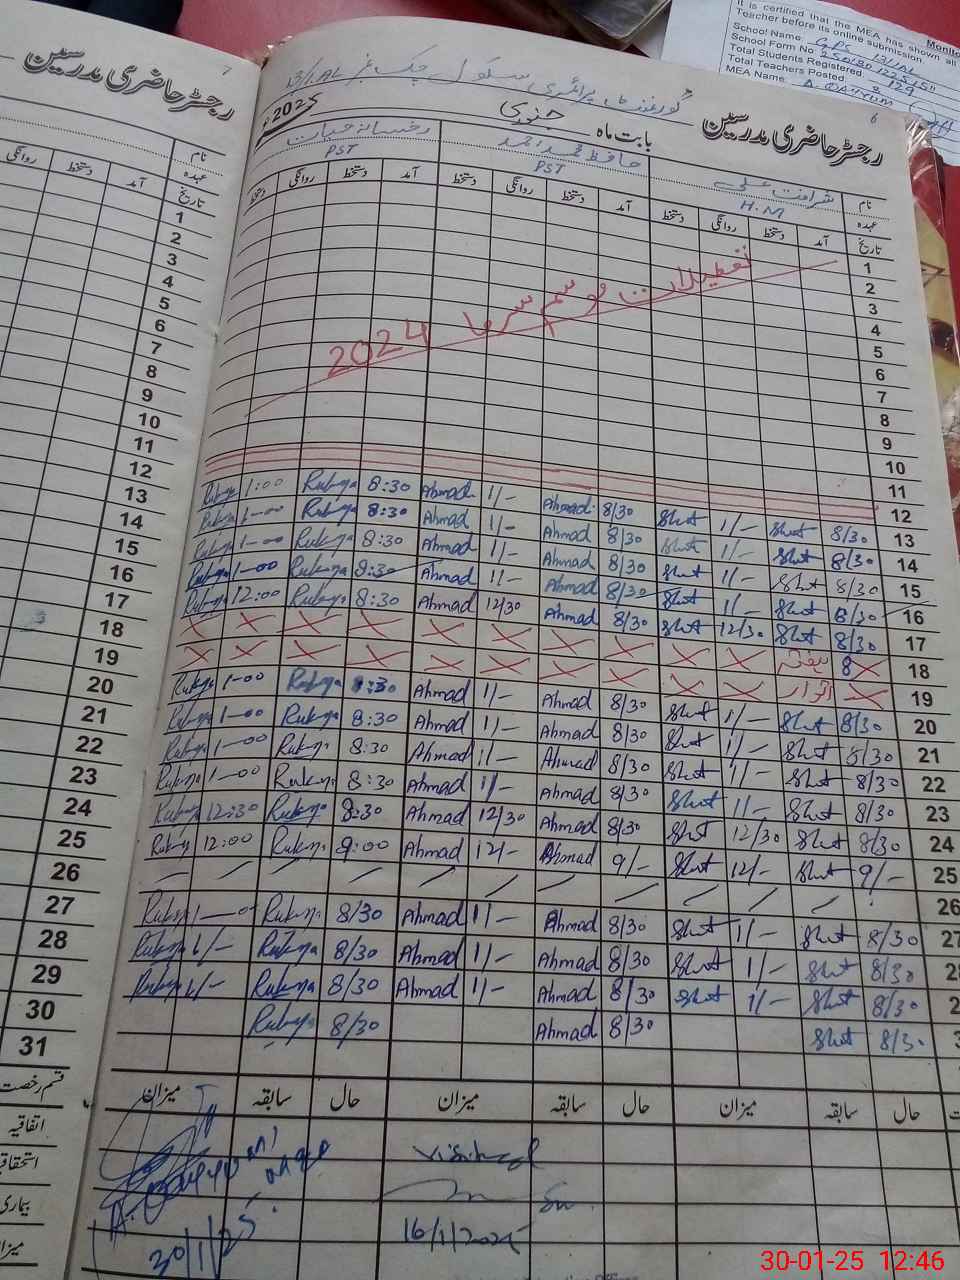 It is certified that the MEA has shown all
Teacher before its online submission.
School Name: GPS 13/1AL
School Form No:
Total Students Registered: 129
Total Teachers Posted: 3
MEA Name: A. QAYYUM
رجسٹر حاضری مدرسین
7
نام
عہدہ
تاریخ
روانگی دستخط آمد
1
2
3
4
5
6
7
8
9
10
11
12
13
14
15
16
17
18
19
20
21
22
23
24
25
26
27
28
29
30
31
قسم رخصت
اتفاقیہ
بیماری
گورنمنٹ پرائمری سکول چک نمبر 13/1AL
6
رجسٹر حاضری مدرسین بابت ماہ جنوری 2025ء
نام شرافت علی حافظ محمد احمد رخسانہ حیات
عہدہ H.M PST PST
تاریخ آمد دستخط روانگی دستخط آمد دستخط روانگی دستخط آمد دستخط روانگی دستخط
1
2
3
4
5
6
7
8
9
10
11
12
تعطیلات موسم سرما 2024
Rukya 1:00 Rukya 8:30 Ahmad 1/- Ahmad 8/30 Shut 1/- Shut 8/30 13
Rukya 1-00 Rukya 8:30 Ahmad 1/- Ahmad 8/30 Shut 1/- Shut 8/30 14
Rukya 1-00 Rukya 8:30 Ahmad 1/- Ahmad 8/30 Shut 1/- Shut 8/30 15
Rukya 1-00 Rukya 8:30 Ahmad 1/- Ahmad 8/30 Shut 1/- Shut 8/30 16
Rukya 12:00 Rukya 8:30 Ahmad 12/30 Ahmad 8/30 Shut 12/30 Shut 8/30 17
ہفتہ 18
اتوار 19
Rukya 1-00 Rukya 8:30 Ahmad 1/- Ahmad 8/30 Shut 1/- Shut 8/30 20
Rukya 1-00 Rukya 8:30 Ahmad 1/- Ahmad 8/30 Shut 1/- Shut 8/30 21
Rukya 1-00 Rukya 8:30 Ahmad 1/- Ahmad 8/30 Shut 1/- Shut 8/30 22
Rukya 1-00 Rukya 8:30 Ahmad 1/- Ahmad 8/30 Shut 1/- Shut 8/30 23
Rukya 12:30 Rukya 8:30 Ahmad 12/30 Ahmad 8/30 Shut 12/30 Shut 8/30 24
Rukya 12:00 Rukya 9:00 Ahmad 12/- Ahmad 9/- Shut 12/- Shut 9/- 25
26
Rukya 1-00 Rukya 8/30 Ahmad 1/- Ahmad 8/30 Shut 1/- Shut 8/30 27
Rukya 1/- Rukya 8/30 Ahmad 1/- Ahmad 8/30 Shut 1/- Shut 8/30
Rukya 1/- Rukya 8/30 Ahmad 1/- Ahmad 8/30 Shut 1/- Shut 8/30
Rukya 8/30 Ahmad 8/30 Shut 8/30
حال سابقہ میزان حال سابقہ میزان حال سابقہ میزان
Visited
16/1/2025
A. Qayyum
30/1/25
30-01-25 12:46